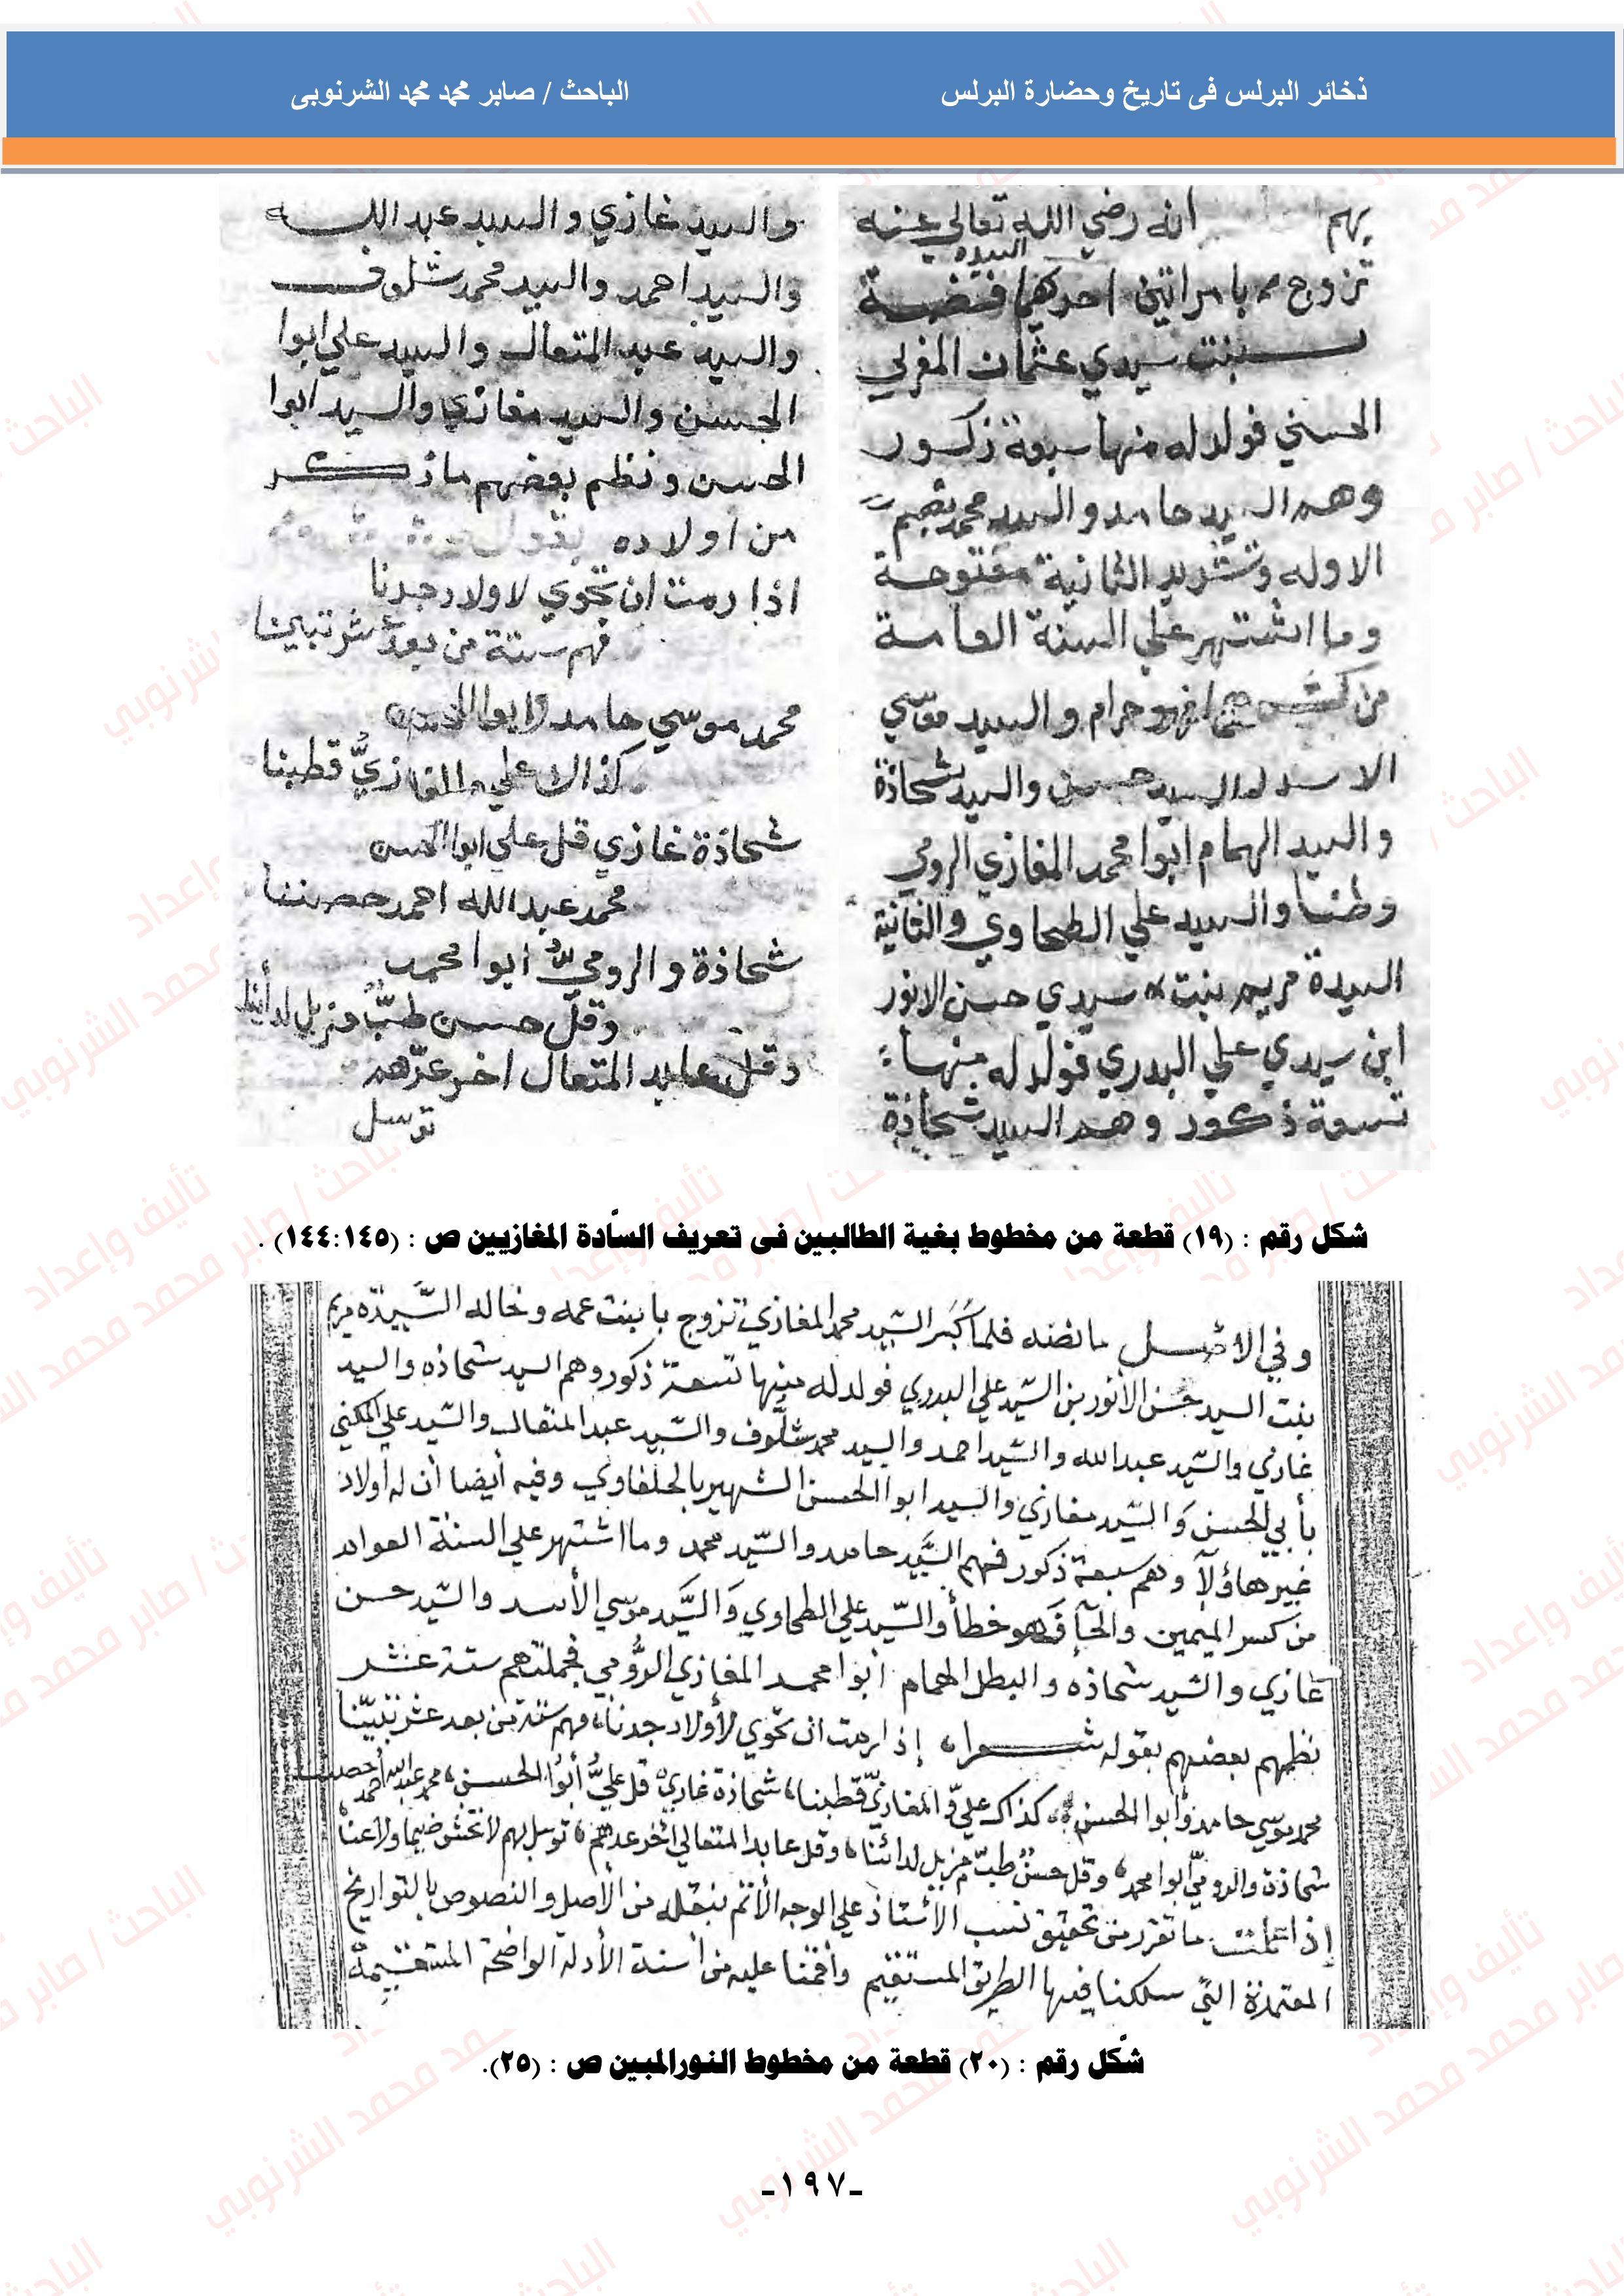 ذخائر البرلس فى تاريخ وحضارة البرلس
الباحث / صابر محمد محمد الشرنوبى
بهم انه رضي الله تعالى عنه
السيده
تزوج بامراتين احدكهما فضة
بنت سيدي عثمان المغربي
الحسني فولد له منها سبعة ذكور
وهم السيد حامد والسيد محمد بضم
الاوله وتشديد الثانية مفتوحة
وما اشتهر علي السنة العامة
من والسيد موسي
الاسد والسيد حسن والسيد شحاذة
والسيد الهمام ابوا محمد المغازي الرومي
وطنا والسيد علي الطحاوي والثانية
السيدة مريم بنت سيدي حسن الانور
ابن سيدي علي البدري فولد له منها
تسعة ذكور وهم السيد شحاذة
والسيد غازي والسيد عبد الله
والسيد احمد والسيد محمد شلوف
والسيد عبد المتعال والسيد علي ابوا
الحسن والسيد مغازي والسيد ابوا
الحسن ونظم بعضهم ما ذكر
من اولاده بقوله
اذا رمت ان تحوي لاولاد جدنا
فهم ستة من بعد عشر تبينا
محمد موسي حامد وابوا الحسن
كذاك علي والمغازيُّ قطبنا
شحاذة غازي قل علي ابوا الحسن
محمد عبد الله احمد حصننا
شحاذة والرومي ابوا محمد
وقل حسن طبٌّ مزيل لدائنا
وقل عابد المتعال اخر عدهم
توسل
شكل رقم : (١٩) قطعة من مخطوط بغية الطالبين فى تعريف السادة المغازيين ص : (١٤٤:١٤٥) .
وفي الاصل ما نصه فلما كبر السيد محمد المغازي تزوج بابنت عمه وخاله السيده مريم
بنت السيد حسن الأنور بن السيد علي البدري فولد له منها تسعة ذكور وهم السيد شحاذه والسيد
غازي والسيد عبد الله والسيد احمد والسيد محمد شلوف والسيد عبد المتعال والسيد علي المكني
بأبي الحسن والسيد مغازي والسيد ابوا الحسن الشهير بالحلفاوي وفيه أيضا أن له أولاد
غير هاؤلآ وهم سبعة ذكور فهم السيد حامد والسيد محمد وما اشتهر علي السنة العوام
من كسر الميمين والحآ فهو خطأ والسيد علي الطحاوي والسيد موسي الأسد والسيد حسن
غازي والسيد شحاذه والبطل الهمام أبوا محمد المغازي الرومي فجملتهم ستة عشر
نظمهم بعضهم بقوله شعرا إذا رمت ان تحوي لأولاد جدنا فهم ستة من بعد عشر تبيّنا
محمد موسي حامد وأبوا الحسن كذاك علي والمغازيّ قطبنا شحاذة غازي قل عليٌّ أبوا الحسن محمد عبد الله أحمد حصننا
شحاذة والرومي أبوا محمد وقل حسن طبّ مزيل لدائنا وقل عابد المتعالي اخر عدهم توسل بهم لا تخش ضيما ولا عنا
إذا تأملت ما تقرر من تحقيق نسب الاستاذ علي الوجه الأتم بنقله من الأصل والنصوص بالتواريخ
المعتمدة التي سلكنا فيها الطريق المستقيم وأقمنا عليه من أسنة الأدلة الواضحة المستقيمة
شكل رقم : (٢٠) قطعة من مخطوط النورالمبين ص : (٢٥).
-١٩٧-